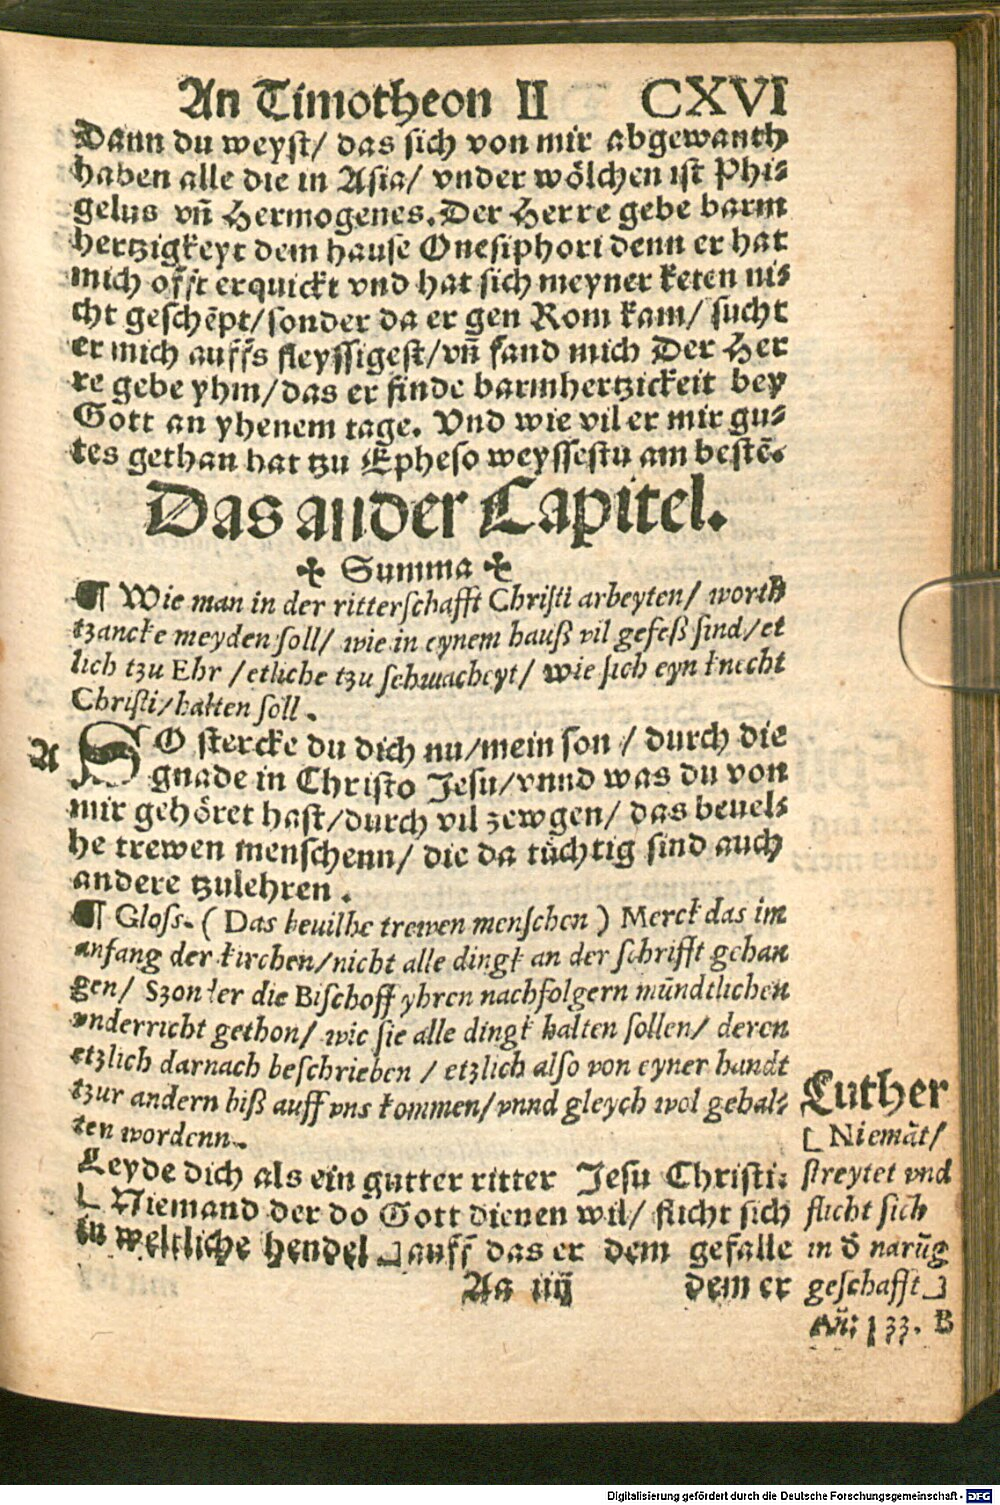 An Timotheon II CXVI
Dann du weyst/ das sich von mir abgewanth
haben alle die in Asia/ vnder wölchen ist Phi-
gelus vñ Hermogenes. Der Herre gebe barm
hertzigkeyt dem hause Onesiphori denn er hat
mich offt erquickt vnd hat sich meyner keten ni-
cht geschẽpt/ sonder da er gen Rom kam/ sucht
er mich auffs fleyssigest/ vñ fand mich Der Her
re gebe yhm/ das er finde barmhertzickeit bey
Gott an yhenem tage. Vnd wie vil er mir gu-
tes gethan hat tzu Epheso weyssestu am bestẽ.
Das ander Capitel.
✣ Summa ✣
¶ Wie man in der ritterschafft Christi arbeyten/ worth
tzancke meyden soll/ wie in eynem hauß vil gefeß sind/ et
lich tzu Ehr / etliche tzu schwacheyt/ wie sich eyn knecht
Christi/ halten soll.
A SO stercke du dich nu/ mein son / durch die
gnade in Christo Jesu/ vnnd was du von
mir gehöret hast/ durch vil zewgen/ das beuel-
he trewen menschenn/ die da tüchtig sind auch
andere tzulehren.
¶ Gloss. ( Das beuilhe trewen menschen ) Merck das im
anfang der kirchen/ nicht alle dingk an der schrifft gehan
gen/ Szonder die Bischoff yhren nachfolgern mündtlichen
vnderricht gethon/ wie sie alle dingk halten sollen/ deren
etzlich darnach beschrieben / etzlich also von eyner handt
tzur andern biß auff vns kommen/ vnnd gleych wol gehal-
ten wordenn.
Leyde dich als ein gutter ritter Jesu Christi:
[ Niemand der do Gott dienen wil/ flicht sich
in weltliche hendel ] auff das er dem gefalle
Aa iiij dem er
Luther
[ Niemãt/
streytet vnd
flicht sich
in d̃ narũg
geschafft ]
Añ: 133. B
Digitalisierung gefördert durch die Deutsche Forschungsgemeinschaft - DFG